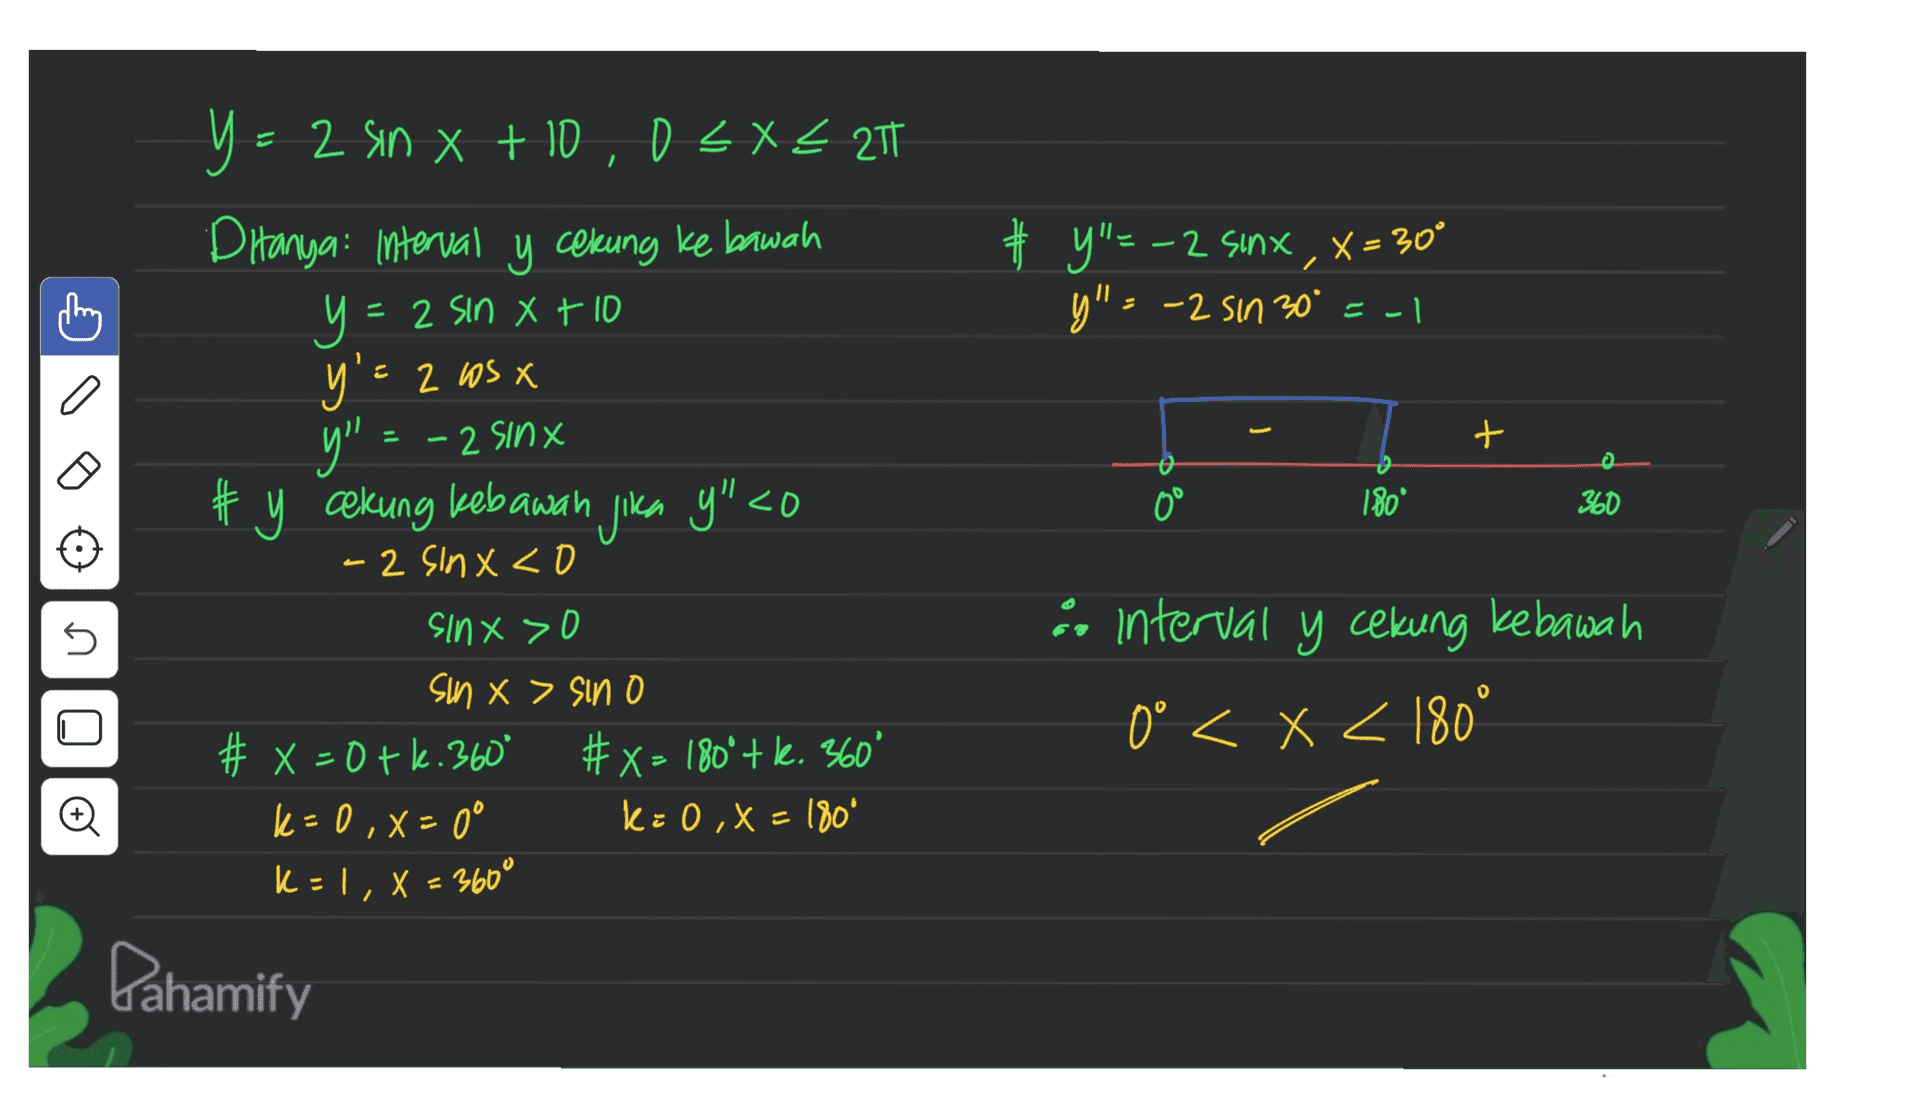 y = 2 sin x + 10 , 0 ≤ x ≤ 2π
Ditanya: Interval y cekung ke bawah
y = 2 sin x + 10
y' = 2 cos x
y" = -2 sin x
# y cekung kebawah jika y" < 0
-2 sin x < 0
sin x > 0
sin x > sin 0
# x = 0 + k.360° # x = 180° + k. 360°
k = 0 , x = 0° k = 0 , x = 180°
k = 1 , x = 360°
# y" = -2 sin x , x = 30°
y" = -2 sin 30° = -1
- +
0° 180° 360
∴ interval y cekung kebawah
0° < x < 180°
Pahamify